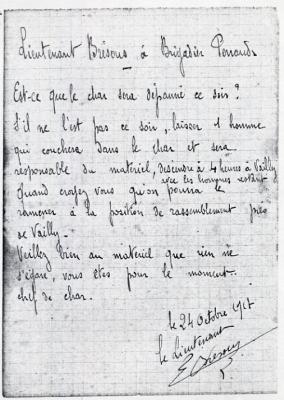 Lieutenant Brésous à Brigadier Perraud
Est-ce que le char sera dépanné ce soir ?
S'il ne l'est pas ce soir, laisser 1 homme
qui couchera dans le char et sera
responsable du matériel, descendre à 4 heures à Vailly
avec les hommes restant
Quand croyez vous qu'on pourra le
ramener à la position de rassemblement près
de Vailly.
Veillez bien au matériel que rien ne
s'égare, vous êtes pour le moment
chef de char.
le 24 Octobre 1917
le Lieutenant